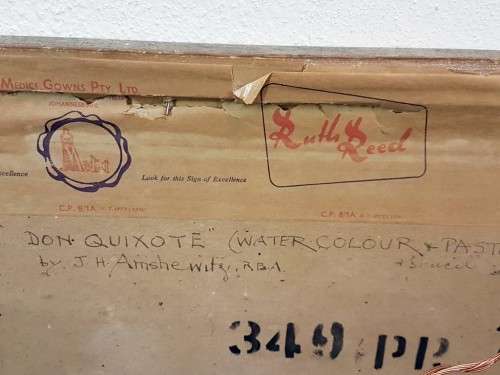 MEDICS GOWNS PTY. LTD.
JOHANNESBURG
Ruth Reed
xcellence
Look for this Sign of Excellence
C.P. 87A
C.P. 87A
DON QUIXOTE" (WATER COLOUR & PAST
by J. H. Amshewitz, R.B.A.
349 PP